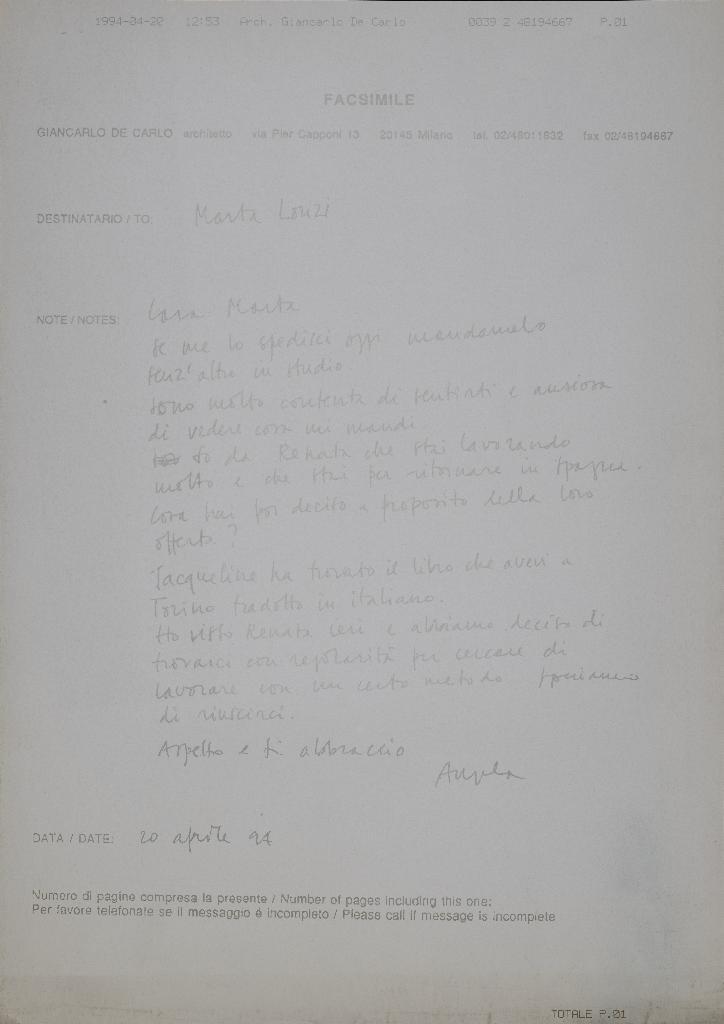 1994-04-20 12:53 Arch. Giancarlo De Carlo 0039 2 48194667 P.01
FACSIMILE
GIANCARLO DE CARLO architetto via Pier Capponi 13 20145 Milano tel. 02/48011832 fax 02/48194667
DESTINATARIO / TO: Marta Lonzi
NOTE / NOTES: Cara Marta
se me lo spedisci oggi mandamelo
senz'altro in studio.
sono molto contenta di sentirti e ansiosa
di vedere cosa mi mandi.
So da Renata che stai lavorando
molto e che stai per ritornare in Spagna.
Cosa hai poi deciso a proposito della loro
offerta?
Jacqueline ha trovato il libro che avevi a
Torino tradotto in italiano.
Ho visto Renata ieri e abbiamo deciso di
trovarci con regolarità per cercare di
lavorare con un certo metodo speriamo
di riuscirci.
Aspetto e ti abbraccio
Angela
DATA / DATE: 20 aprile 94
Numero di pagine compresa la presente / Number of pages including this one:
Per favore telefonate se il messaggio è incompleto / Please call if message is incomplete
TOTALE P.01